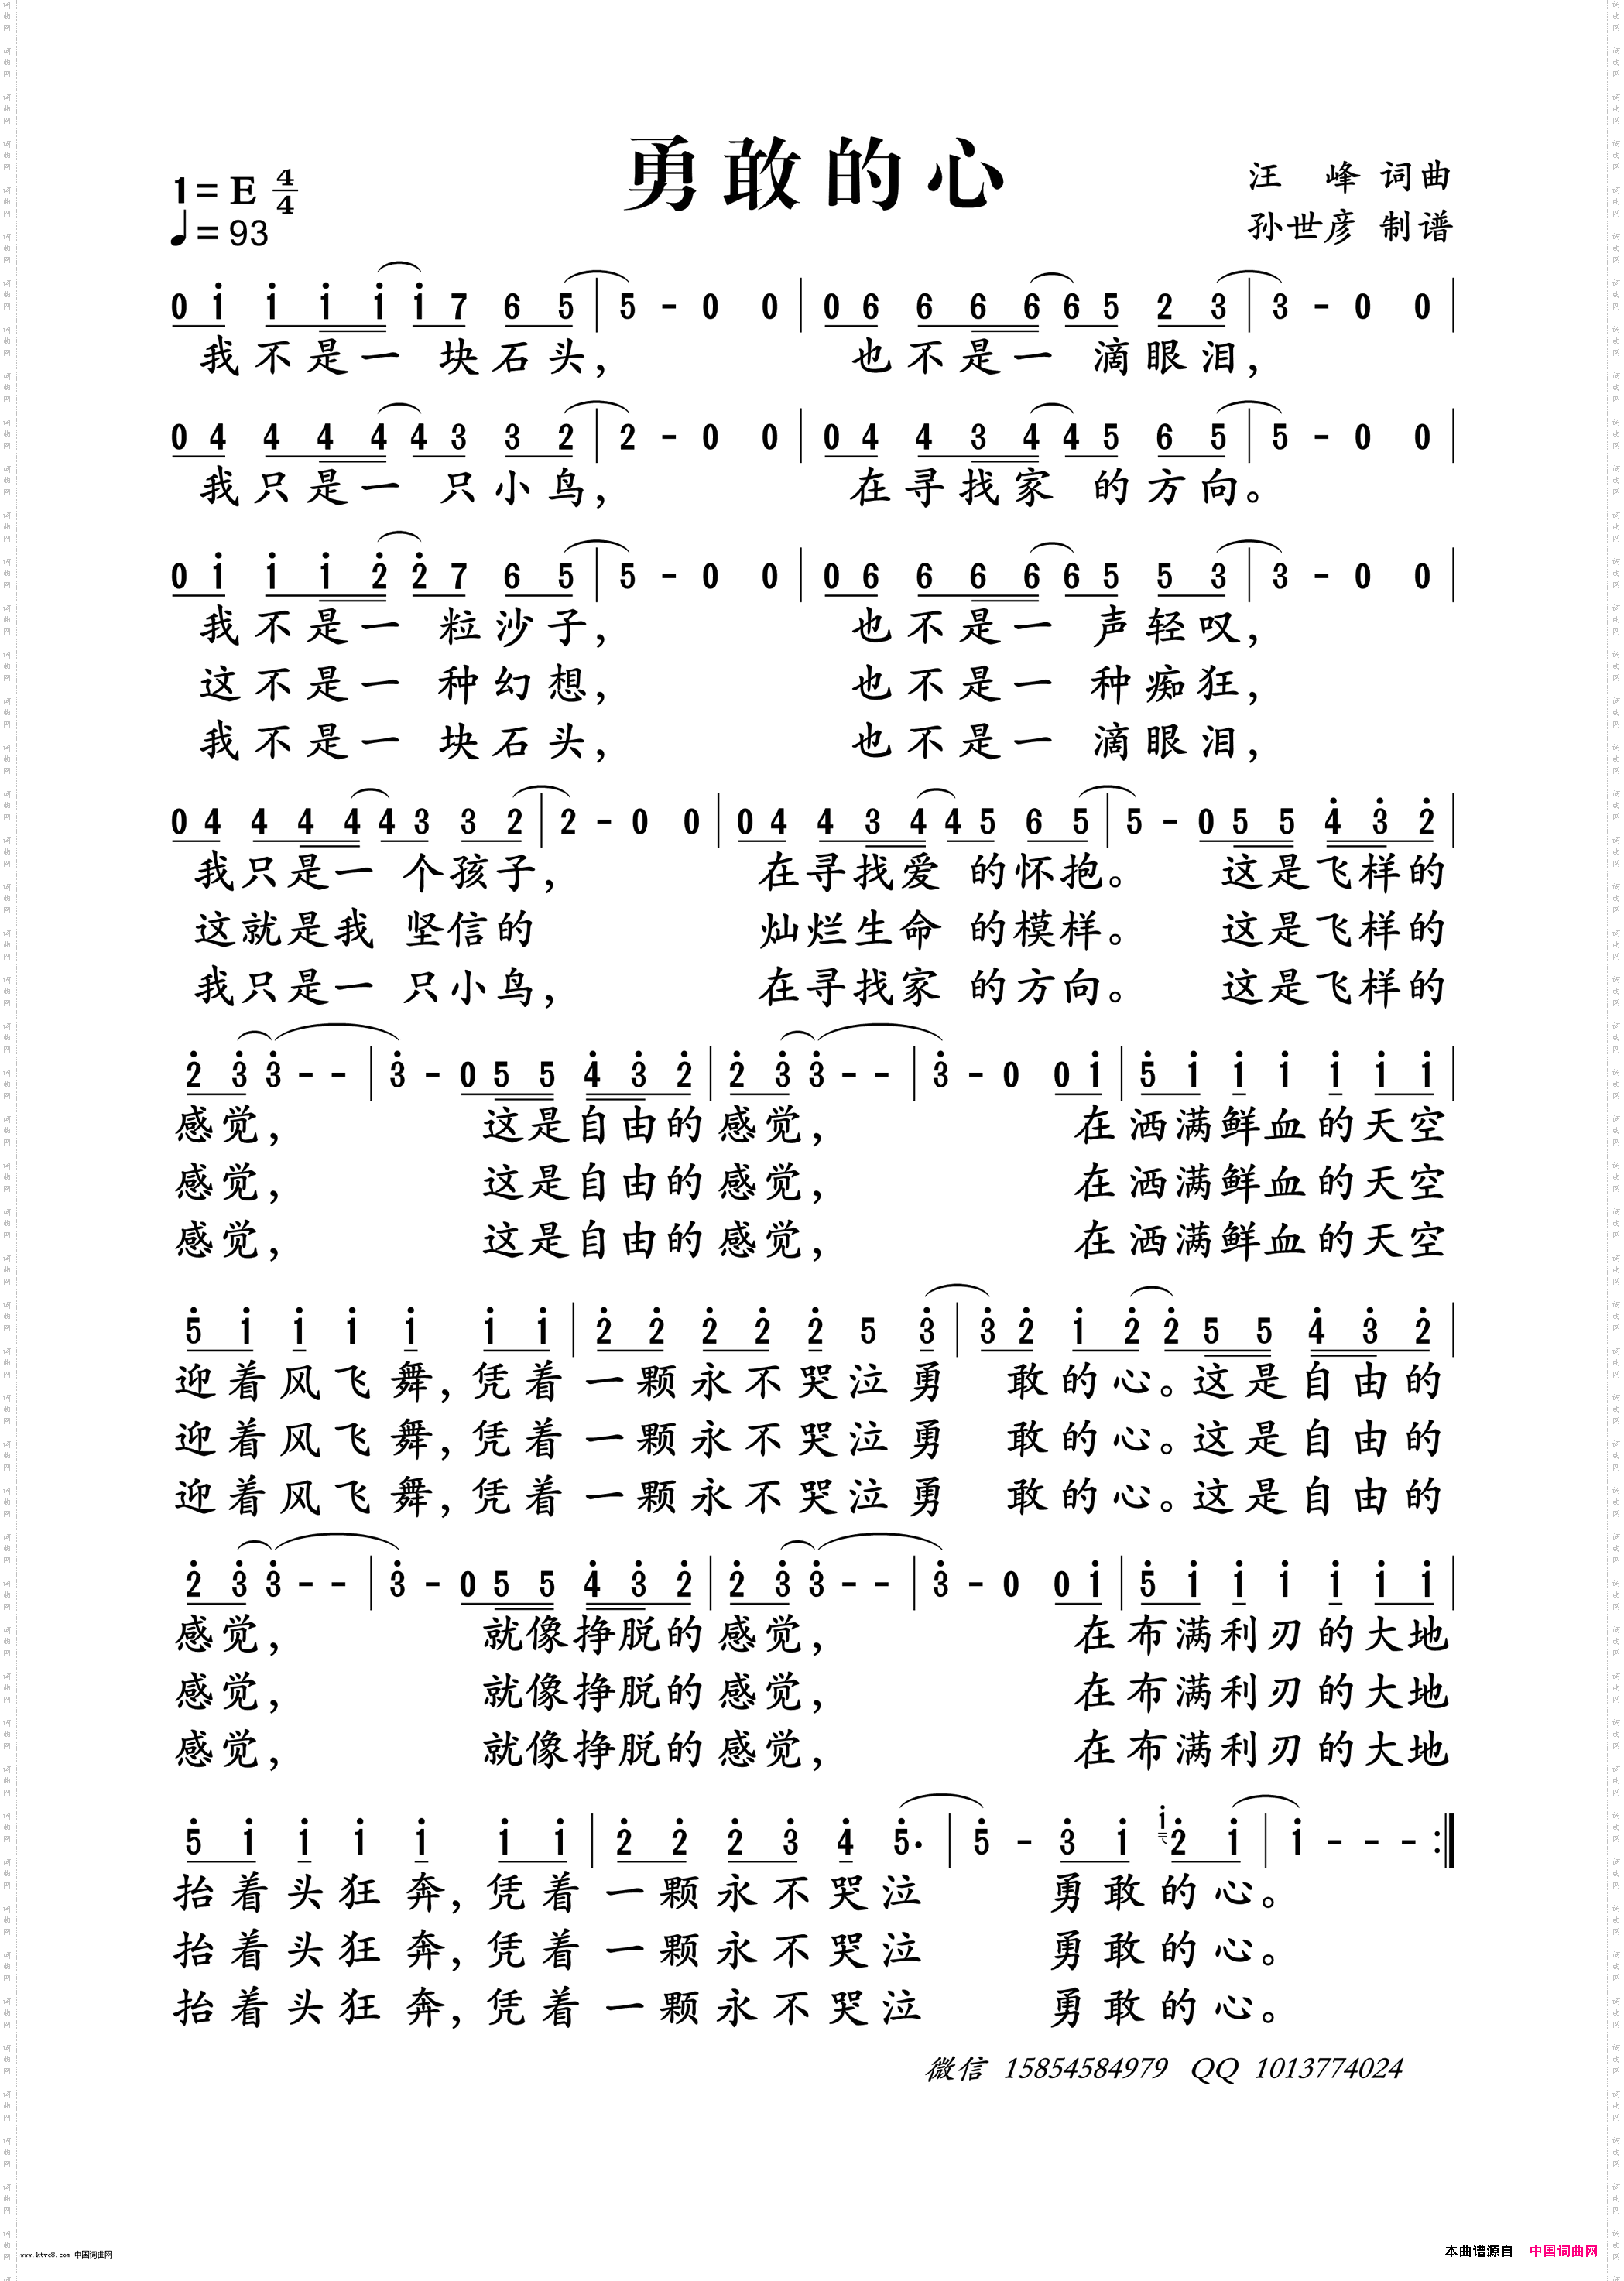 勇敢的心
1=E 4/4
♩=93
汪 峰 词曲
孙世彦 制谱
0 1̇ 1̇ 1̇ 1̇ 1̇ 7 6 5 | 5 - 0 0 | 0 6 6 6 6 6 5 2 3 | 3 - 0 0 |
我不是一 块石头, 也不是一 滴眼泪,
0 4 4 4 4 4 3 3 2 | 2 - 0 0 | 0 4 4 3 4 4 5 6 5 | 5 - 0 0 |
我只是一 只小鸟, 在寻找家 的方向。
0 1̇ 1̇ 1̇ 2̇ 2̇ 7 6 5 | 5 - 0 0 | 0 6 6 6 6 6 5 5 3 | 3 - 0 0 |
我不是一 粒沙子, 也不是一 声轻叹,
这不是一 种幻想, 也不是一 种痴狂,
我不是一 块石头, 也不是一 滴眼泪,
0 4 4 4 4 4 3 3 2 | 2 - 0 0 | 0 4 4 3 4 4 5 6 5 | 5 - 0 5 5 4̇ 3̇ 2̇ |
我只是一 个孩子, 在寻找爱 的怀抱。 这是飞样的
这就是我 坚信的 灿烂生命 的模样。 这是飞样的
我只是一 只小鸟, 在寻找家 的方向。 这是飞样的
2̇ 3̇ 3̇ - - | 3̇ - 0 5 5 4̇ 3̇ 2̇ | 2̇ 3̇ 3̇ - - | 3̇ - 0 0 1̇ | 5̇ 1̇ 1̇ 1̇ 1̇ 1̇ 1̇ |
感觉, 这是自由的 感觉, 在 洒满鲜血的天空
感觉, 这是自由的 感觉, 在 洒满鲜血的天空
感觉, 这是自由的 感觉, 在 洒满鲜血的天空
5̇ 1̇ 1̇ 1̇ 1̇ 1̇ 1̇ | 2̇ 2̇ 2̇ 2̇ 2̇ 5 3̇ | 3̇ 2̇ 1̇ 2̇ 2̇ 5 5 4̇ 3̇ 2̇ |
迎着风飞舞,凭着 一颗永不哭泣勇 敢的心。这是自由的
迎着风飞舞,凭着 一颗永不哭泣勇 敢的心。这是自由的
迎着风飞舞,凭着 一颗永不哭泣勇 敢的心。这是自由的
2̇ 3̇ 3̇ - - | 3̇ - 0 5 5 4̇ 3̇ 2̇ | 2̇ 3̇ 3̇ - - | 3̇ - 0 0 1̇ | 5̇ 1̇ 1̇ 1̇ 1̇ 1̇ 1̇ |
感觉, 就像挣脱的 感觉, 在 布满利刃的大地
感觉, 就像挣脱的 感觉, 在 布满利刃的大地
感觉, 就像挣脱的 感觉, 在 布满利刃的大地
5̇ 1̇ 1̇ 1̇ 1̇ 1̇ 1̇ | 2̇ 2̇ 2̇ 3̇ 4̇ 5̇. | 5̇ - 3̇ 1̇ 1̇ 2̇ 1̇ | 1̇ - - - :‖
抬着头狂奔,凭着 一颗永不哭泣 勇敢的心。
抬着头狂奔,凭着 一颗永不哭泣 勇敢的心。
抬着头狂奔,凭着 一颗永不哭泣 勇敢的心。
微信 15854584979 QQ 1013774024
www.ktvc8.com 中国词曲网
本曲谱源自 中国词曲网